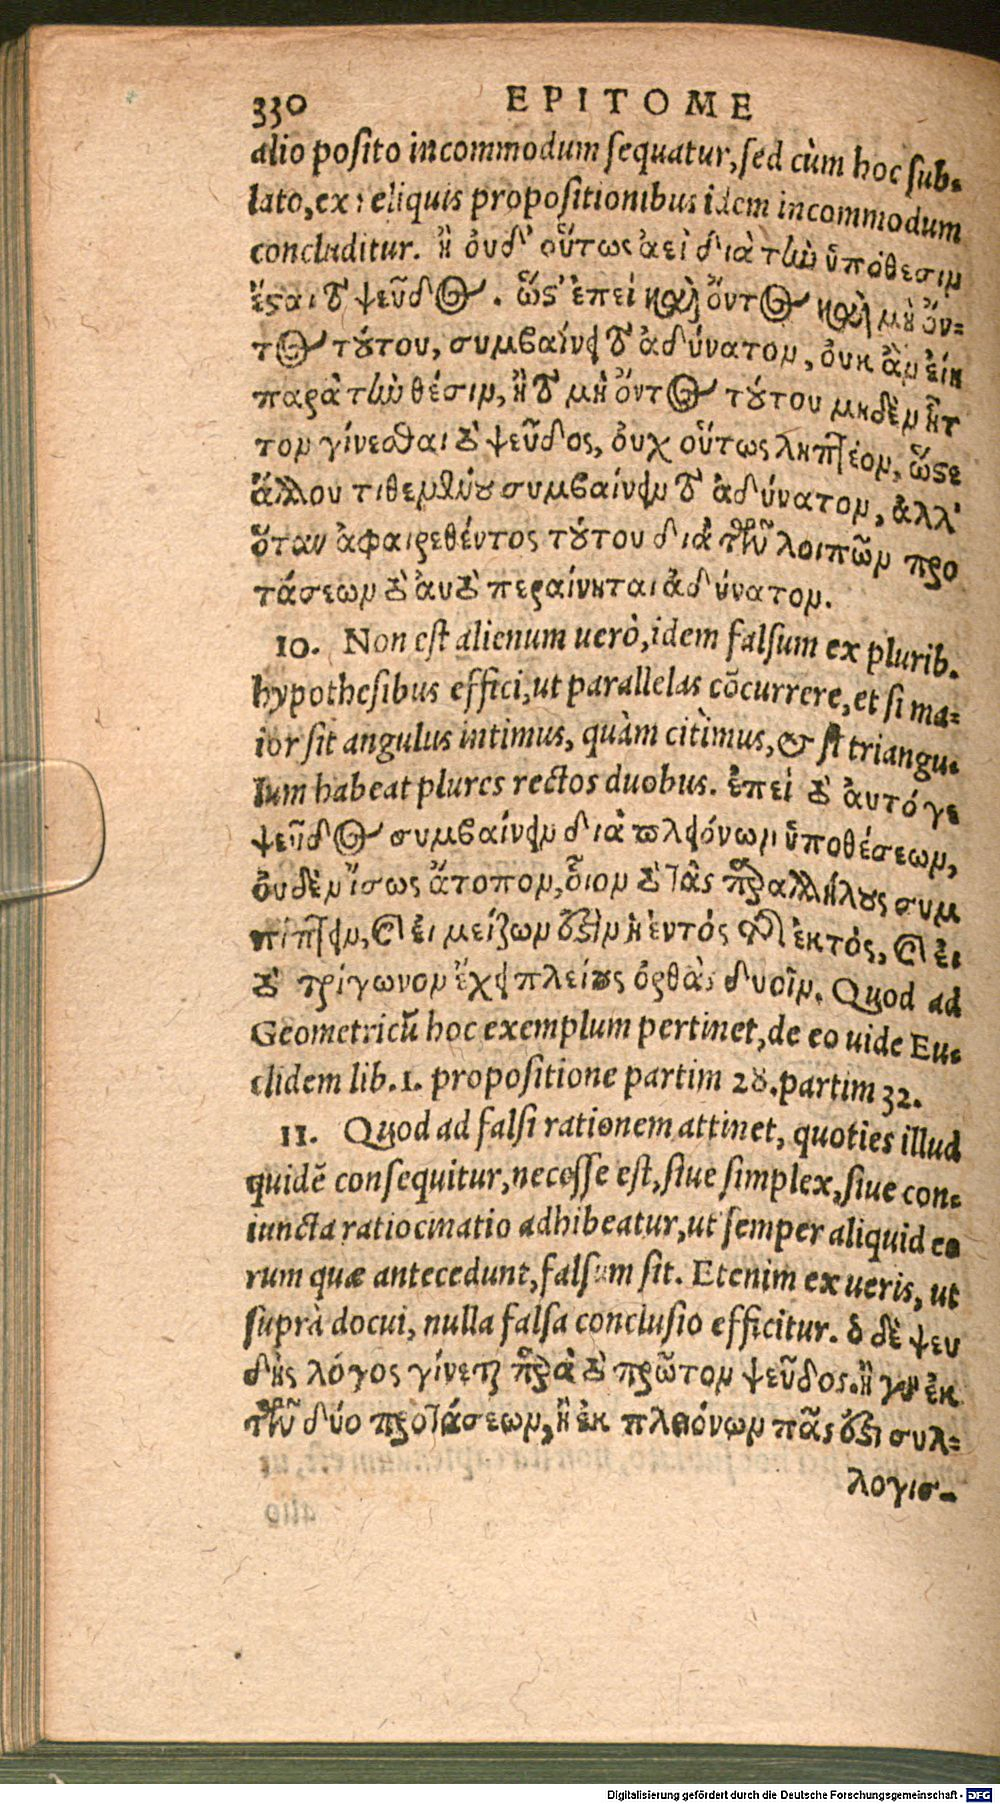 330 EPITOME
alio posito incommodum sequatur, sed cùm hoc sub-
lato, ex reliquis propositionibus idem incommodum
concluditur. ἢ οὐδ' οὕτως ἀεὶ διὰ τὴν ὑπόθεσιν
ἔσται τὸ ψεῦδος. ὥστ' ἐπεὶ καὶ ὄντος καὶ μὴ ὄν-
τος τούτου, συμβαίνει τὸ ἀδύνατον, οὐκ ἂν εἴη
παρὰ τὴν θέσιν, ἢ τὸ μὴ ὄντος τούτου μηδὲν ἧτ
τον γίνεσθαι τὸ ψεῦδος, οὐχ οὕτως ληπτέον, ὥστε
ἄλλου τιθεμένου συμβαίνειν τὸ ἀδύνατον, ἀλλ'
ὅταν ἀφαιρεθέντος τούτου διὰ τῶν λοιπῶν προ
τάσεων τὸ αὐτὸ περαίνηται ἀδύνατον.
10. Non est alienum uerò, idem falsum ex plurib.
hypothesibus effici, ut parallelas cōcurrere, et si ma-
ior sit angulus intimus, quàm citimus, & si triangu-
lum habeat plures rectos duobus. ἐπεὶ τὸ αὐτό γε
ψεῦδος συμβαίνειν διὰ πλειόνων ὑποθέσεων,
οὐδὲν ἴσως ἄτοπον, οἷον τὸ τὰς παραλλήλους συμ
πίπτειν, καὶ εἰ μείζων ἐστὶν ἡ ἐντὸς τῆς ἐκτός, καὶ εἰ
τὸ τρίγωνον ἔχει πλείους ὀρθὰς δυοῖν. Quod ad
Geometricū hoc exemplum pertinet, de eo uide Eu-
clidem lib. 1. propositione partim 28. partim 32.
11. Quod ad falsi rationem attinet, quoties illud
quidē consequitur, necesse est, siue simplex, siue con-
iuncta ratiocinatio adhibeatur, ut semper aliquid eo
rum quæ antecedunt, falsum sit. Etenim ex ueris, ut
suprà docui, nulla falsa conclusio efficitur. ὁ δὲ ψευ
δὴς λόγος γίνεται παρὰ τὸ πρῶτον ψεῦδος. ἢ γὰρ ἐκ
τῶν δύο προτάσεων, ἢ ἐκ πλειόνων πᾶς ἐστι συλ-
λογισ-
Digitalisierung gefördert durch die Deutsche Forschungsgemeinschaft - DFG